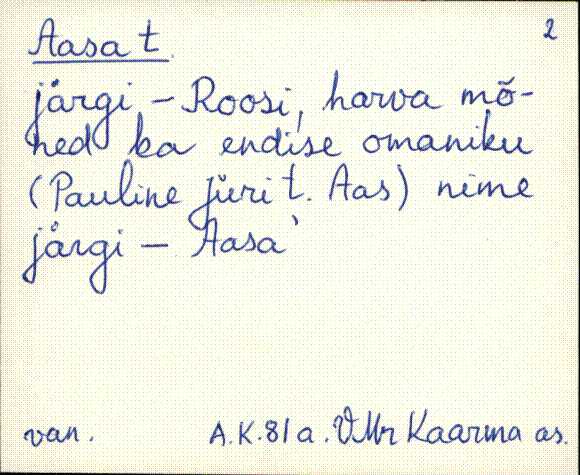 Aasa t. 2
järgi – Roosi, harva mõ-
ned ka endise omaniku
(Pauline Jüri t. Aas) nime
järgi – Aasa'
van. A.K. 81 a. VMr Kaarma as.